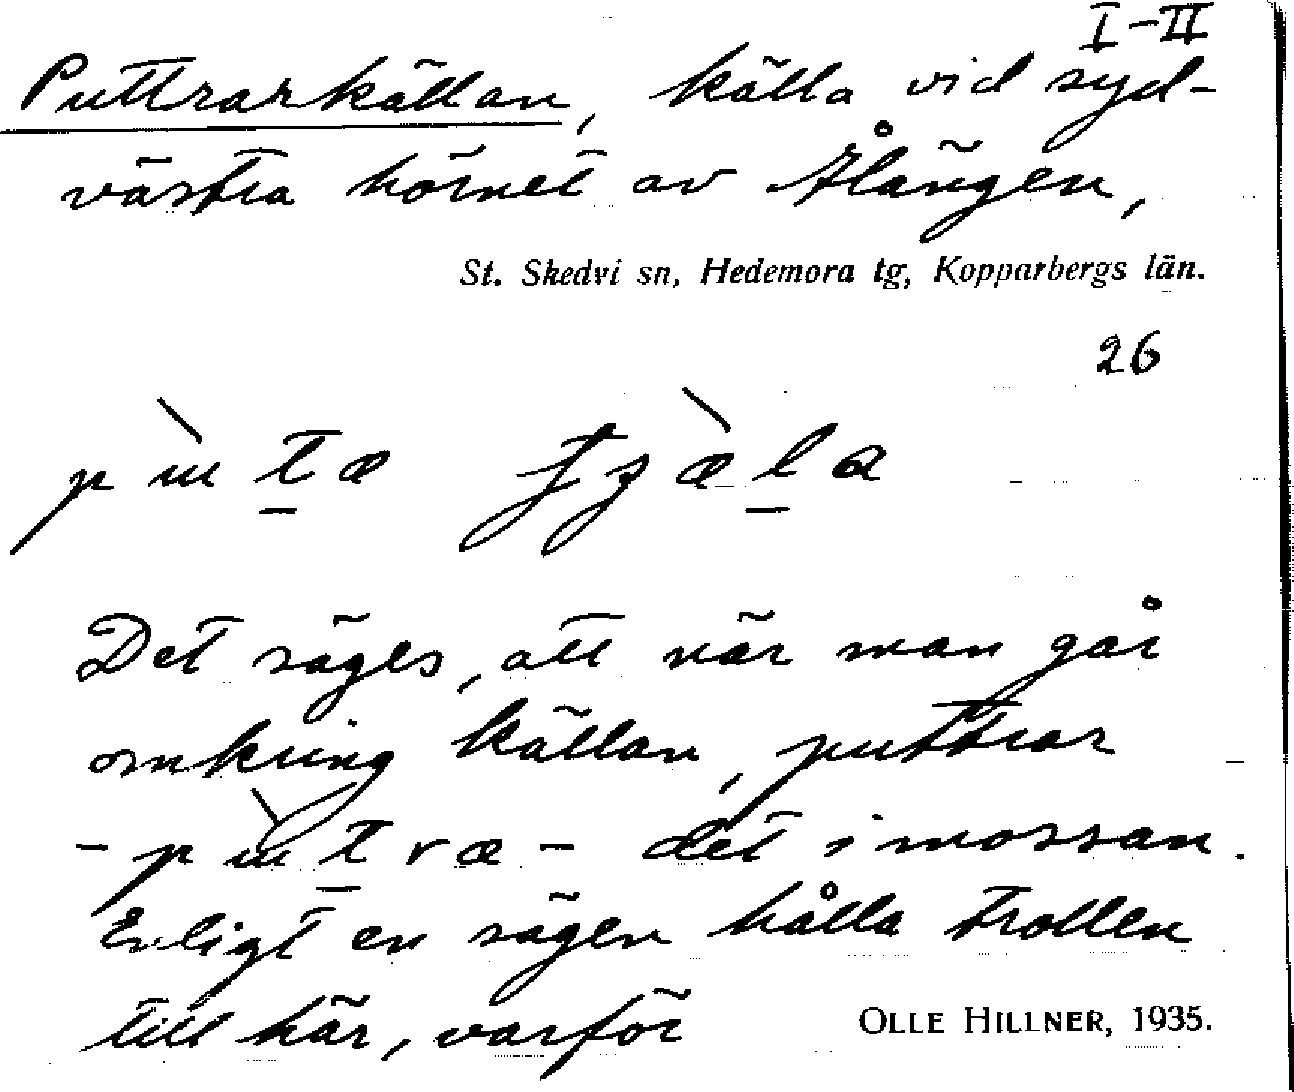 I-II
Puttrarkällan, källa vid syd-
västra hörnet av Åkängen,
St. Skedvi sn, Hedemora tg, Kopparbergs län.
26
Det säges, att när man går
omkring källan, puttrar
det i mossan.
Enligt en sägen hålla trollen
till här, varför
OLLE HILLNER, 1935.